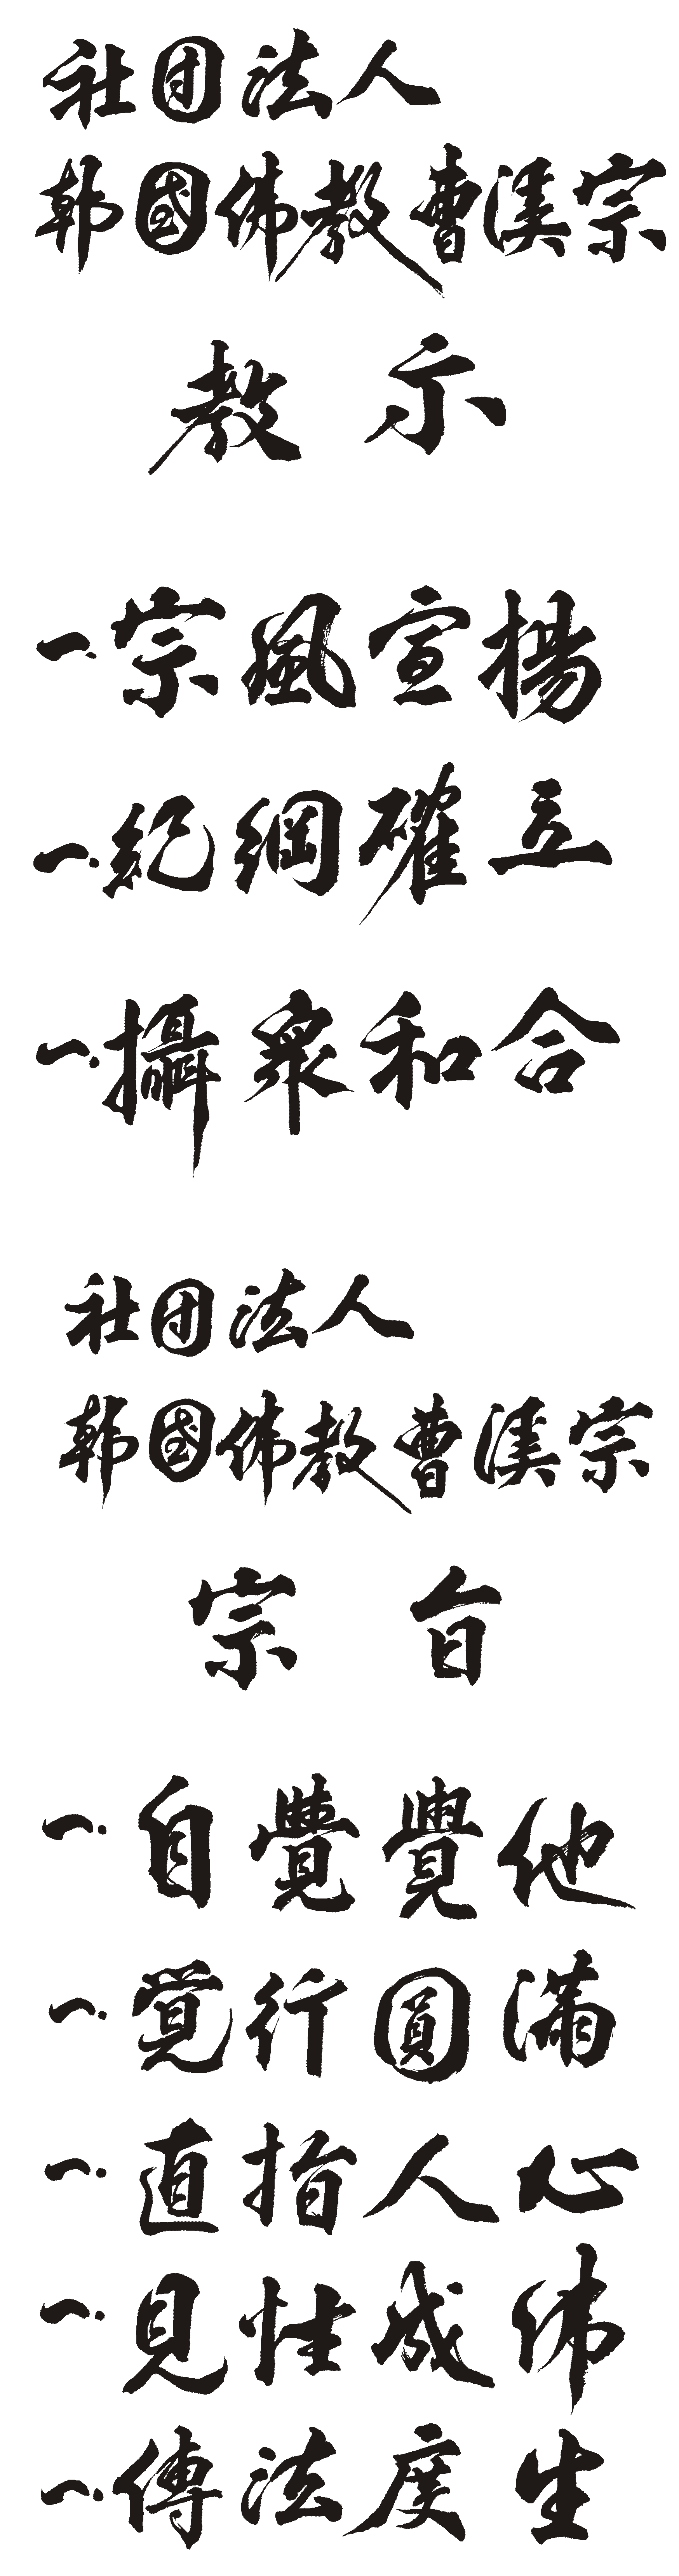 社团法人
韩國佛教曹溪宗
教 示
一. 宗風宣揚
一. 紀綱確立
一. 攝衆和合
社团法人
韩國佛教曹溪宗
宗 旨
一. 自覺覺他
一. 覚行圓滿
一. 直指人心
一. 見性成佛
一. 傳法度生